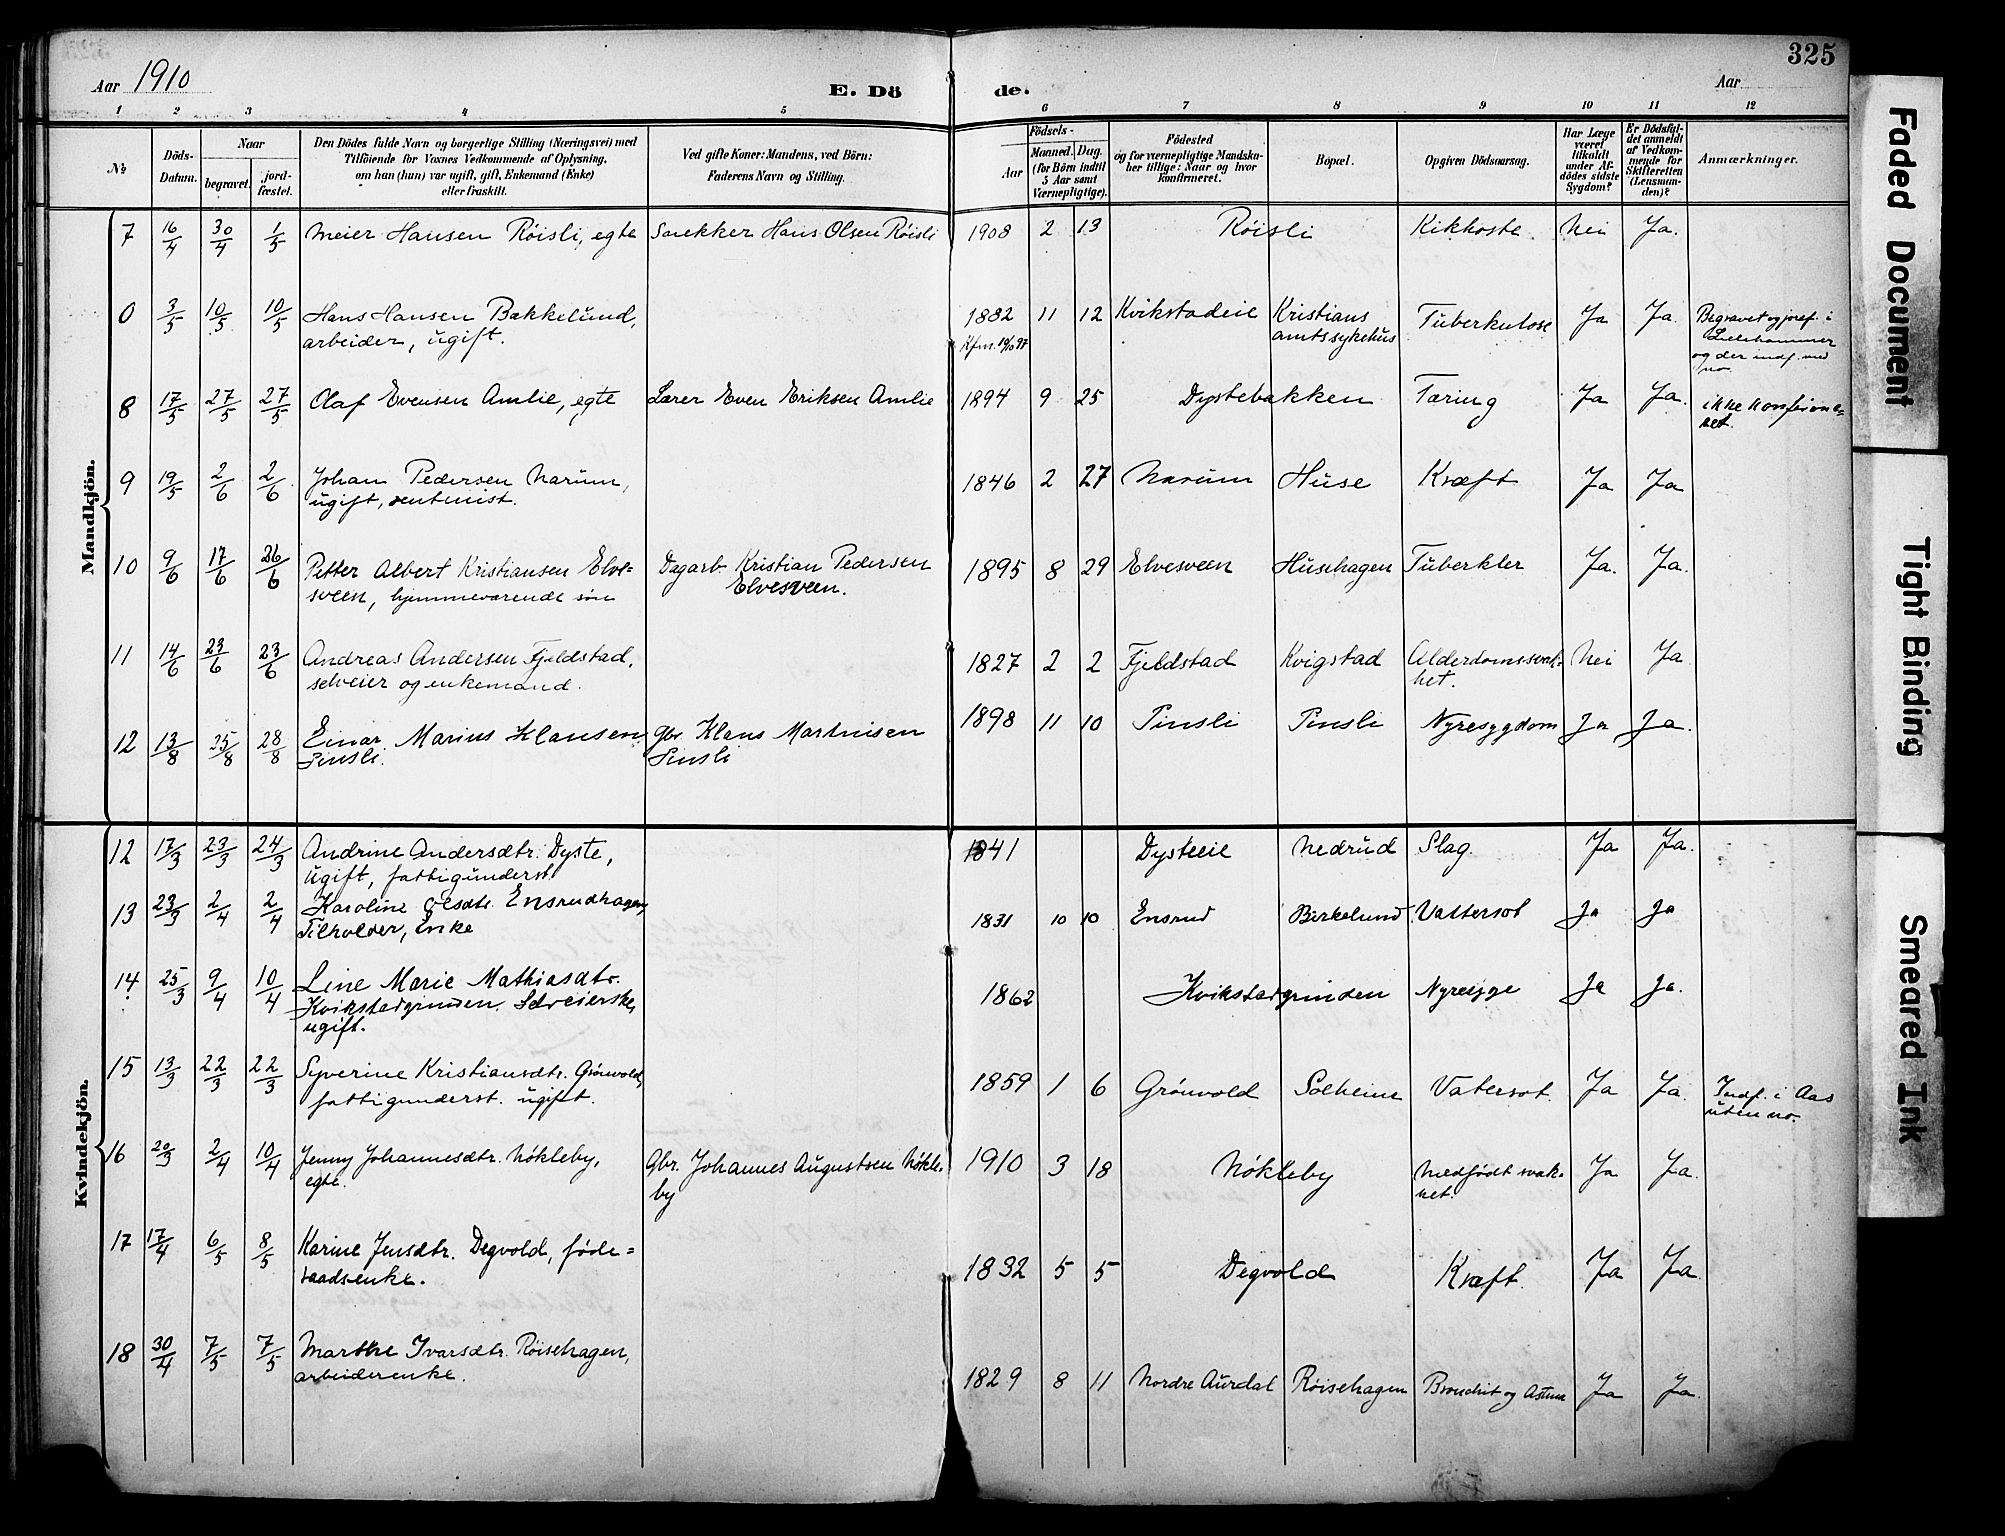 325
Aar 1910
E. Dö
de.
Aar
1 2 3 4 5 6 7 8 9 10 11 12
No
Döds-
Datum.
Naar
begravet.
jord-
fæstet.
Den Dödes fulde Navn og borgerlige Stilling (Næringsvei) med
Tilföiende for Voxnes Vedkommende af Oplysning,
om han (hun) var ugift, gift, Enkemand (Enke)
eller fraskilt.
Ved gifte Koner: Mandens, ved Börn:
Faderens Navn og Stilling.
Födsels-
Aar
Maaned. Dag.
(for Börn indtil
5 Aar samt
Værnepligtige).
Födested
og for værnepligtige Mandska-
ber tillige: Naar og hvor
konfirmeret.
Bopæl.
Opgiven Dödsaarsag.
Har Læge
været
tilkaldt
under Af-
dödes sidste
Sygdom?
Er Dödsfal-
det anmeldt
af Vedkom-
mende for
Skifteretten
(Lensman-
den)?
Anmærkninger.
Mandkjön.
7 16/4 30/4 1/5 Meier Hansen Röisli, egte Snekker Hans Olsen Röisli 1908 2 13 Röisli Kikhoste Nei Ja.
0 3/5 10/5 10/5 Hans Hansen Bakkelund,
arbeider, ugift.
1882 11 12 Kvikstadeie Kristians
amtssykehus
Tuberkulose Ja Ja
Begravet og jordf. i
Lillehammer
og der indf. med
no
8 17/5 27/5 27/5 Olaf Evensen Amlie, egte Lærer Even Eriksen Amlie 1894 9 25 Dystebakken Tæring Ja Ja. ikke konfirme=
ret.
9 19/5 2/6 2/6 Johan Pedersen Narum,
ugift, rentenist.
1846 2 27 Narum Huse Kræft Ja Ja
10 9/6 17/6 26/6 Petter Albert Kristiansen Elve-
sveen, hjemmeværende søn
Dagarb. Kristian Pedersen
Elvesveen.
1895 8 29 Elvesveen Husehagen Tuberkler Ja. Ja.
11 14/6 23/6 23/6 Andreas Andersen Fjeldstad,
selveier og enkemand.
1827 2 2 Fjeldstad Kvigstad Alderdomssvak-
het.
Nei Ja
12 13/8 25/8 28/8 Einar Marius Klausen
Sinsli.
Gbr. Klaus Martinisen
Sinsli
1898 11 10 Sinsli Sinsli Nyresygdom Ja Ja.
Kvindekjön.
12 17/3 23/3 24/3 Andrine Andersdtr. Dyste,
Ugift, fattigunderst.
1841 Dysteeie Nedrud Slag. Ja Ja.
13 23/3 2/4 2/4 Karoline Olesdtr. Ensrudhagen,
Tilholder, Enke
1831 10 10 Ensrud Birkelund Vattersot Ja Ja
14. 25/3 9/4 10/4 Line Marie Mathiasdtr.
Kvikstadgrinden. Selveierske,
ugift.
1862 Kvikstadgrinden Nyresyge Ja Ja.
15 13/3 22/3 22/3 Syverine Kristiansdtr. Grönvold,
fattigunderst. ugift.
1859 1 6 Grönvold Solheim Vatersot. Ja Ja. Indf. i Aas
uten no.
16 20/3 2/4 10/4 Jenny Johannesdtr. Nökleby,
egte.
Gbr. Johannes Augustsen Nökle-
by
1910 3 18 Nökleby Medfödt svak-
het.
Ja Ja.
17 17/4 6/5 8/5 Karine Jensdtr. Degvold, føde=
raadsenke.
1832 5 5 Degvold Kræft. Ja Ja
18 30/4 7/5 7/5 Marthe Ivarsdtr. Röisehagen,
arbeiderenke.
1829 8 11 Nordre Aurdal Röisehagen Bronchit og Astma Ja Ja.
Faded Document
Tight Binding
Smeared Ink